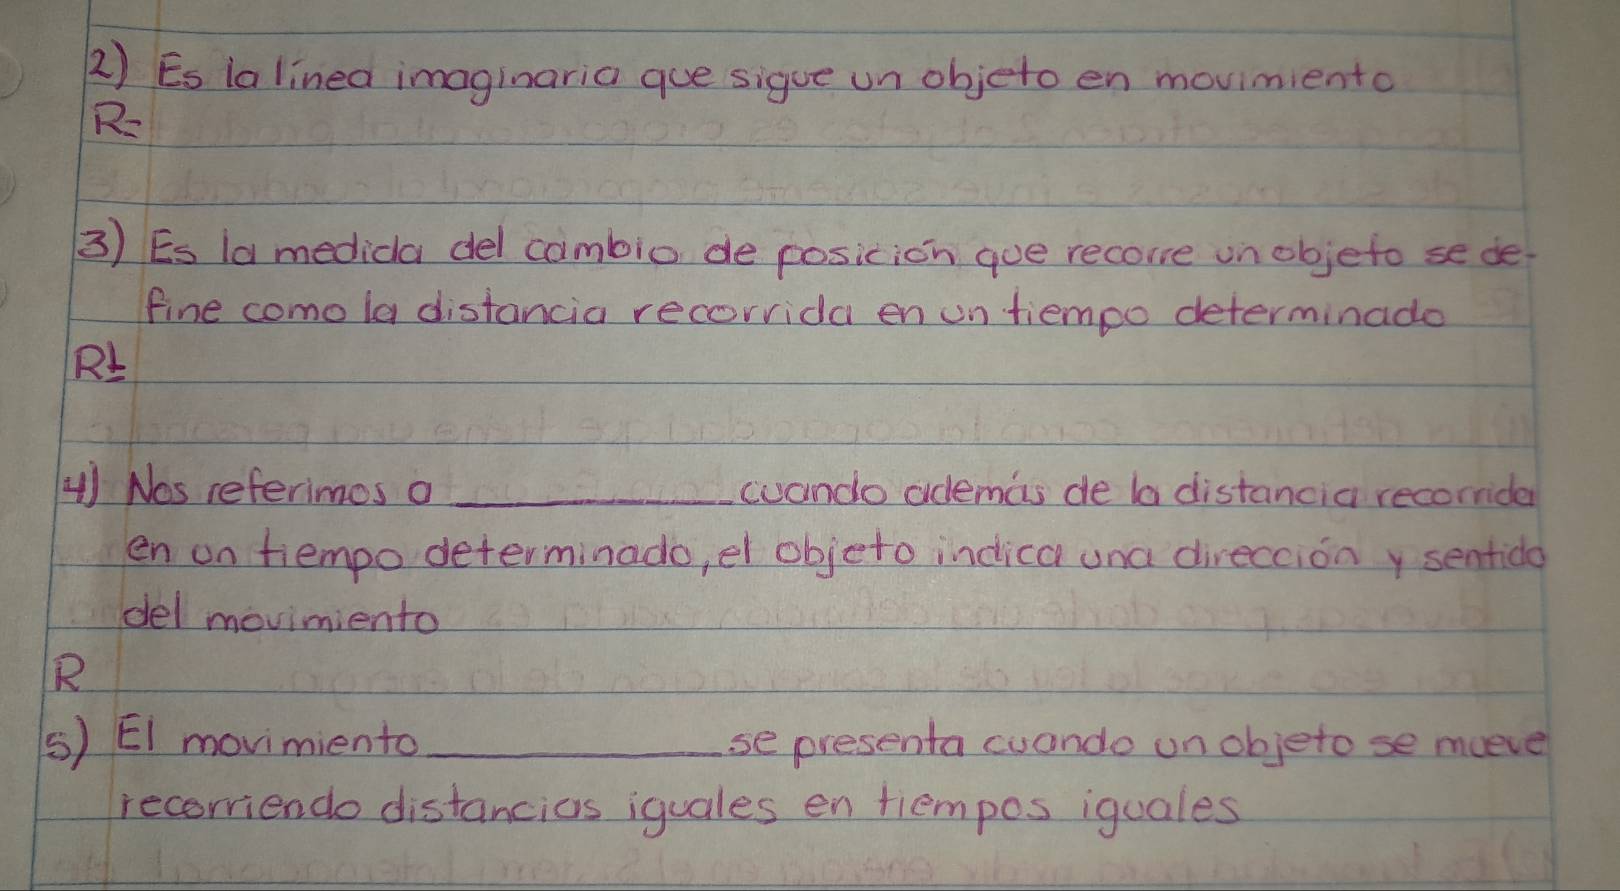 2) Es la línea imaginaria que sigue un objeto en movimiento
R=
3) Es la medida del cambio de posición que recorre un objeto se de-
fine como la distancia recorrida en un tiempo determinado
R=
4) Nos referimos a __________ cuando además de la distancia recorrida
en un tiempo determinado, el objeto indica una dirección y sentido
del movimiento
R
5) El movimiento __________ se presenta cuando un objeto se mueve
recorriendo distancias iguales en tiempos iguales